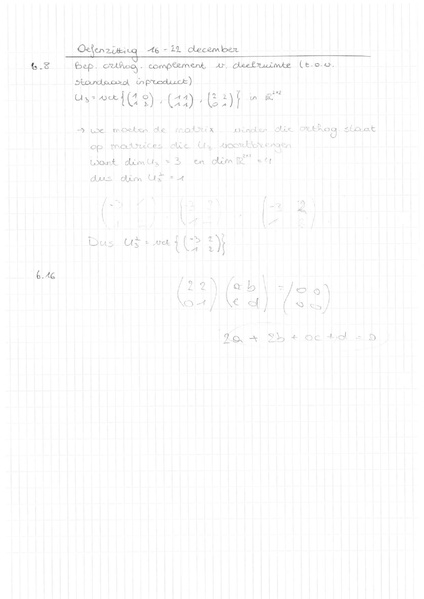 Oefenzitting 16-22 december
6.8 Bep. orthog. complement v. deelruimte (t.o.v.
standaard inproduct)
U₃ = vct { (1 0 / 1 3), (1 1 / 1 1), (2 1 / 0 1) } in ℝ²ˣ²
→ we moeten de matrix vinden die orthog staat
op matrices die U₃ voortbrengen
want dim U₃ = 3 en dim ℝ²ˣ² = 4
dus dim U₃^⊥ = 1
Dus U₃^⊥ = vct { (-3 2 / 1 2) }
6.16
(2 2 / 0 1) (a b / c d) = (0 0 / 0 0)
2a + 2b + 0c + d = 0